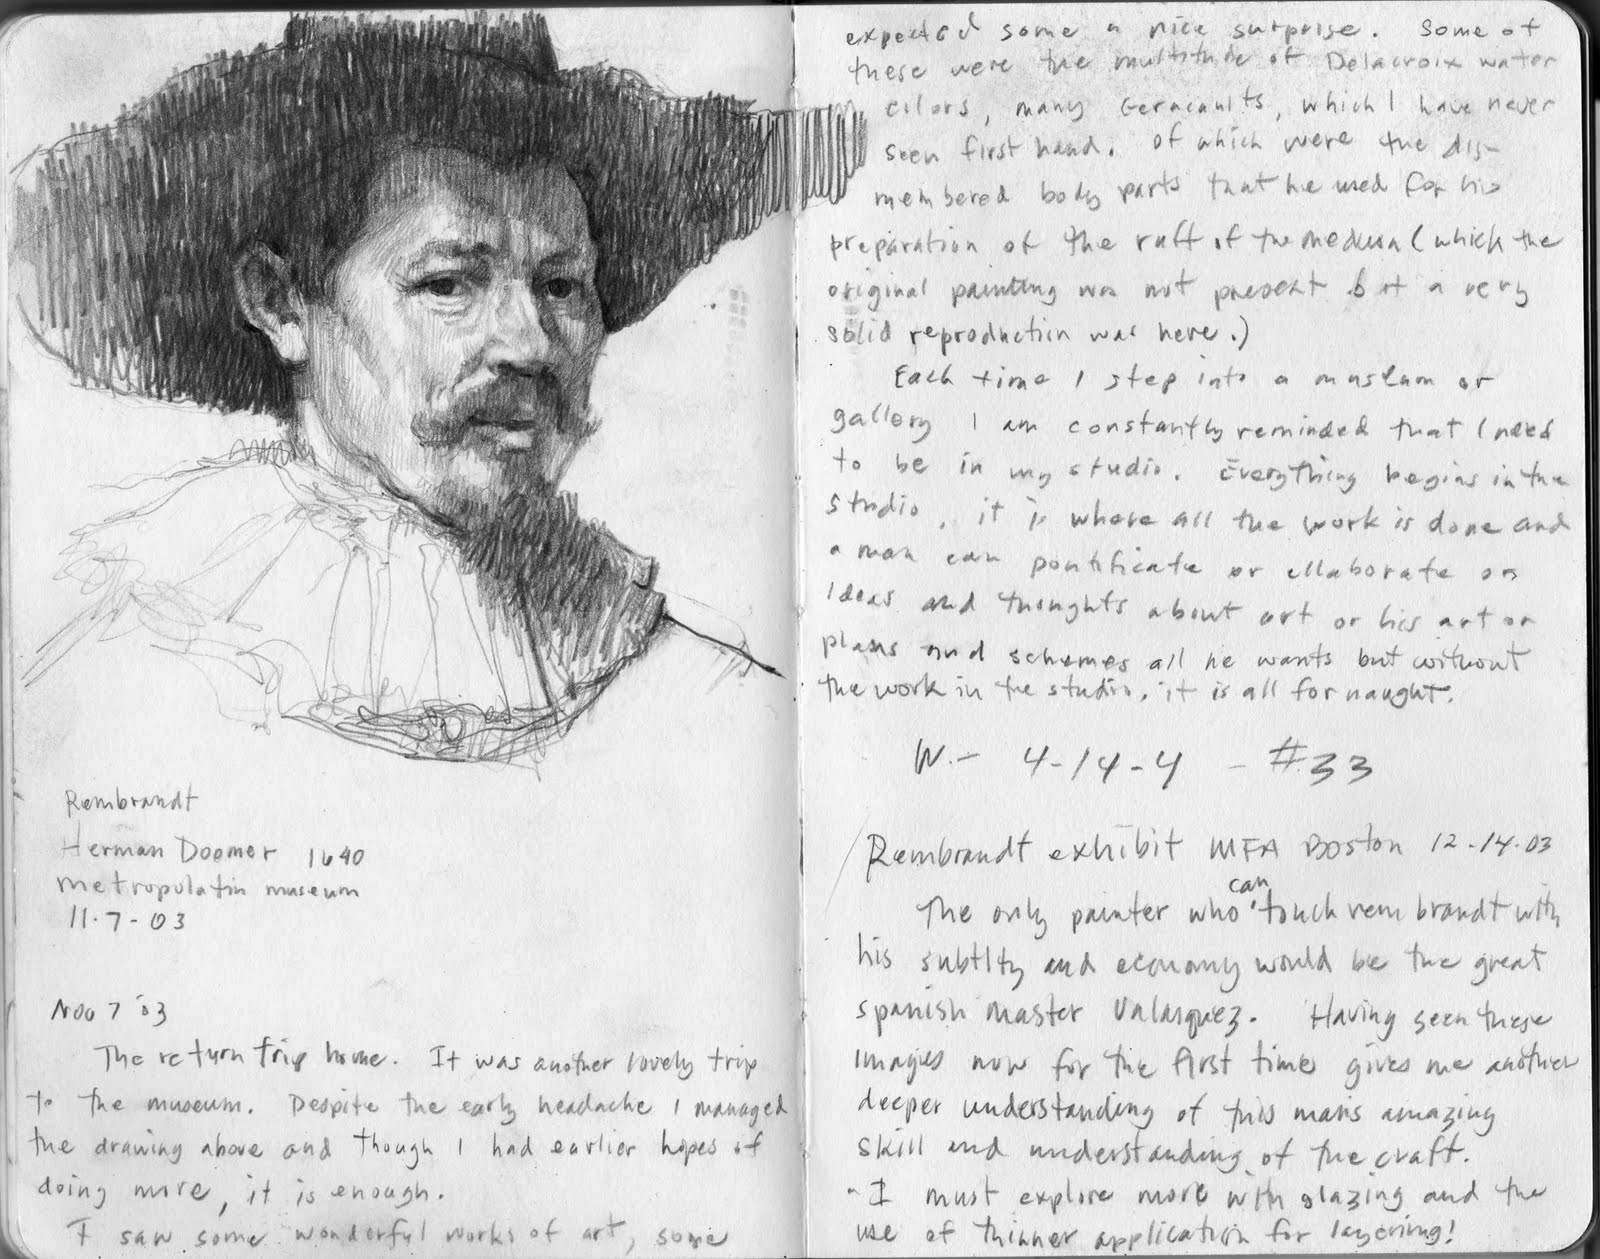 Rembrandt
Herman Doomer 1640
metropolatin museum
11-7-03
Nov 7 '03
The return trip home. It was another lovely trip
to the museum. Despite the early headache I managed
the drawing above and though I had earlier hopes of
doing more, it is enough.
I saw some wonderful works of art, some
expected some a nice surprise. Some of
these were the multitude of Delacroix water
colors, many Geracaults, which I have never
seen first hand. of which were the dis-
membered body parts that he used for his
preparation of the raft of the medusa (which the
original painting was not present but a very
solid reproduction was here.)
Each time I step into a museum or
gallery I am constantly reminded that I need
to be in my studio. Everything begins in the
studio, it is where all the work is done and
a man can pontificate or ellaborate on
ideas and thoughts about art or his art or
plans and schemes all he wants but without
the work in the studio, it is all for naught.
W.- 4-14-4 - #33
Rembrandt exhibit MFA Boston 12-14-03
The only painter who can touch rembrandt with
his subtlty and economy would be the great
spanish master Valasquez. Having seen these
images now for the first time gives me another
deeper understanding of this mans amazing
skill and understanding of the craft.
- I must explore more with glazing and the
use of thinner application for layering!